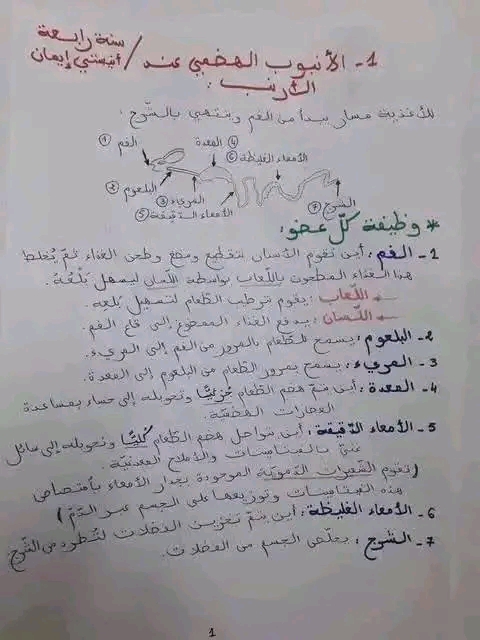 سنة رابعة
1 - الأنبوب الهضمي عند / أنيستي إيمان
الأرنب :
للأغذية مسار يبدأ من الفم وينتهي بالشّرج .
① الفم
④ المعدة
⑥ الأمعاء الغليظة
② البلعوم
③ المريء
⑤ الأمعاء الدّقيقة
⑦ الشرج
* وظيفة كلّ عضو :
1 - الفم : أين تقوم الأسنان بتقطيع ومضغ وطحن الغذاء ثمّ يُخلط
هذا الغذاء المطحون باللّعاب بواسطة اللّسان ليسهل بَلْعُهُ .
اللّعاب : يقوم بترطيب الطّعام لتسهيل بلعه .
اللّسان : يدفع الغذاء الممضوغ إلى قاع الفم .
2 - البلعوم : يسمح للطّعام بالمرور من الفم إلى المريء .
3 - المريء : يسمح بمرور الطّعام من البلعوم إلى المعدة .
4 - المعدة : أين يتمّ هضم الطّعام جُزئيًّا وتحويله إلى حساء بمساعدة
العصارات الهضميّة .
5 - الأمعاء الدّقيقة : أين يتواصل هضم الطّعام كُليًّا وتحويله إلى سائل
غنيّ بالفيتامينات والأملاح المعدنيّة .
( تقوم الشعيرات الدّمويّة الموجودة بجدار الأمعاء بامتصاص
هذه الفيتامينات وتوزيعها على الجسم عبر الدّم )
6 - الأمعاء الغليظة : أين يتمّ تخزين الفضلات لتُطرد من الشّرج
7 - الشرج : يخلّص الجسم من الفضلات .
1